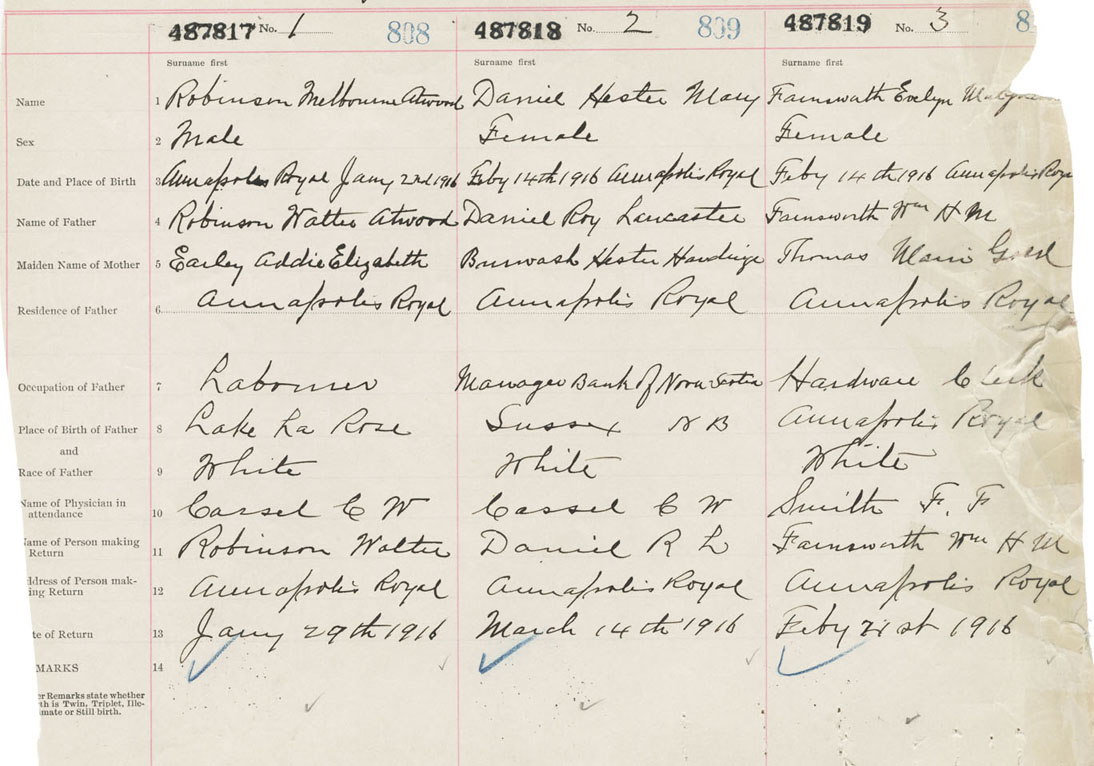 487817 No. 1 808 487818 No. 2 809 487819 No. 3 8
Surname first Surname first Surname first
Name 1 Robinson Melbourne Atwood Daniel Hester Mary Farnsworth Evelyn
Sex 2 Male Female Female
Date and Place of Birth 3 Annapolis Royal Jany 2nd 1916 Feby 14th 1916 Annapolis Royal Feby 14th 1916 Annapolis Roya
Name of Father 4 Robinson Walter Atwood Daniel Roy Lancaster Farnsworth Wm H M
Maiden Name of Mother 5 Earley Addie Elizabeth Burwash Hester Hardinge Thomas
Residence of Father 6 Annapolis Royal Annapolis Royal Annapolis Royal
Occupation of Father 7 Labourer Manager Bank of Nova Scotia Hardware Clerk
Place of Birth of Father 8 Lake La Rose Sussex N B Annapolis Royal
and
Race of Father 9 White White White
Name of Physician in
attendance 10 Cassel C W Cassel C W Smith F. F
Name of Person making
Return 11 Robinson Walter Daniel R L Farnsworth Wm H M
ddress of Person mak-
ing Return 12 Annapolis Royal Annapolis Royal Annapolis Royal
te of Return 13 Jany 29th 1916 March 14th 1916 Feby 21st 1916
MARKS 14
or Remarks state whether
th is Twin, Triplet, Ille-
imate or Still birth.